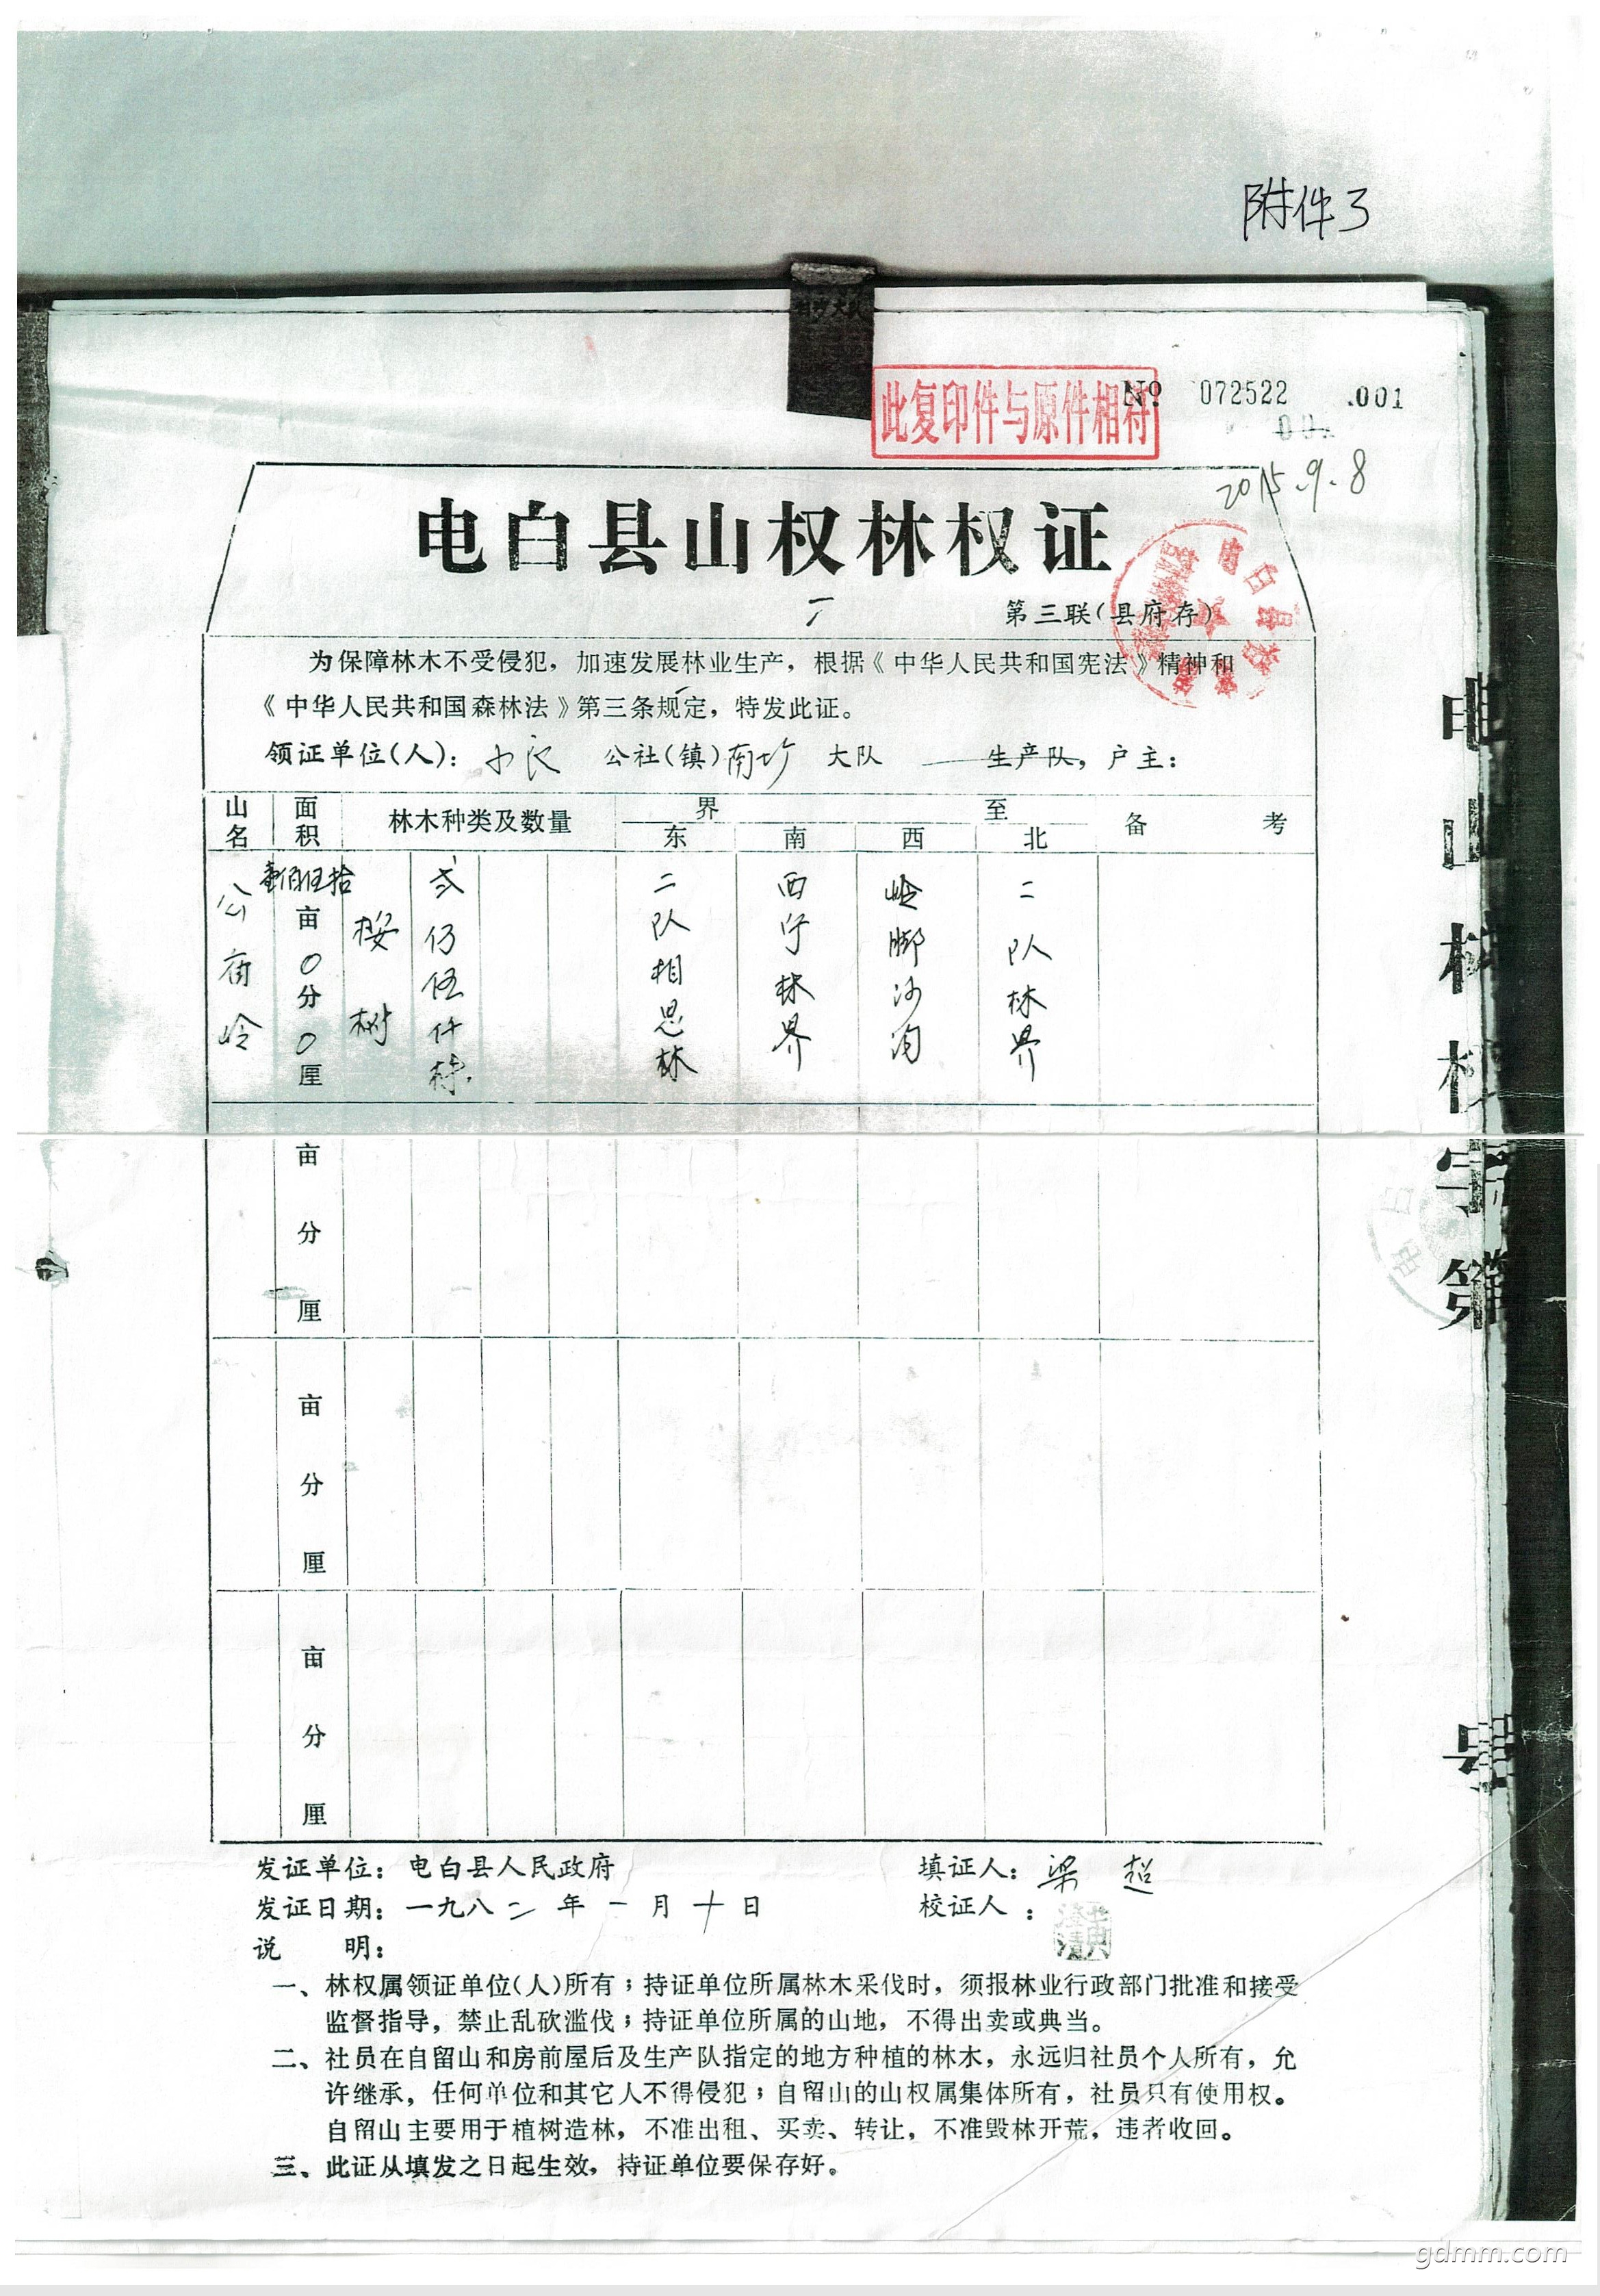 附件3
此复印件与原件相符
№ 072522 .001
2015.9.8
电白县山权林权证
第三联(县府存)
为保障林木不受侵犯，加速发展林业生产，根据《中华人民共和国宪法》精神和
《中华人民共和国森林法》第三条规定，特发此证。
领证单位(人)： 公社(镇)南圹 大队 生产队，户主：
山名 面积 林木种类及数量 界至 备考
东 南 西 北
公庙岭 壹佰伍拾亩0分0厘 桉树 弍仍伍仟株 二队相思林 西圹林界 岭脚沙沟 二队林界
亩 分 厘
亩 分 厘
亩 分 厘
电 山林权字第 号
发证单位：电白县人民政府 填证人：梁超
发证日期：一九八二年一月十日 校证人：
说 明：
一、林权属领证单位(人)所有；持证单位所属林木采伐时，须报林业行政部门批准和接受
监督指导，禁止乱砍滥伐；持证单位所属的山地，不得出卖或典当。
二、社员在自留山和房前屋后及生产队指定的地方种植的林木，永远归社员个人所有，允
许继承，任何单位和其它人不得侵犯；自留山的山权属集体所有，社员只有使用权。
自留山主要用于植树造林，不准出租、买卖、转让，不准毁林开荒，违者收回。
三、此证从填发之日起生效，持证单位要保存好。
gdmm.com